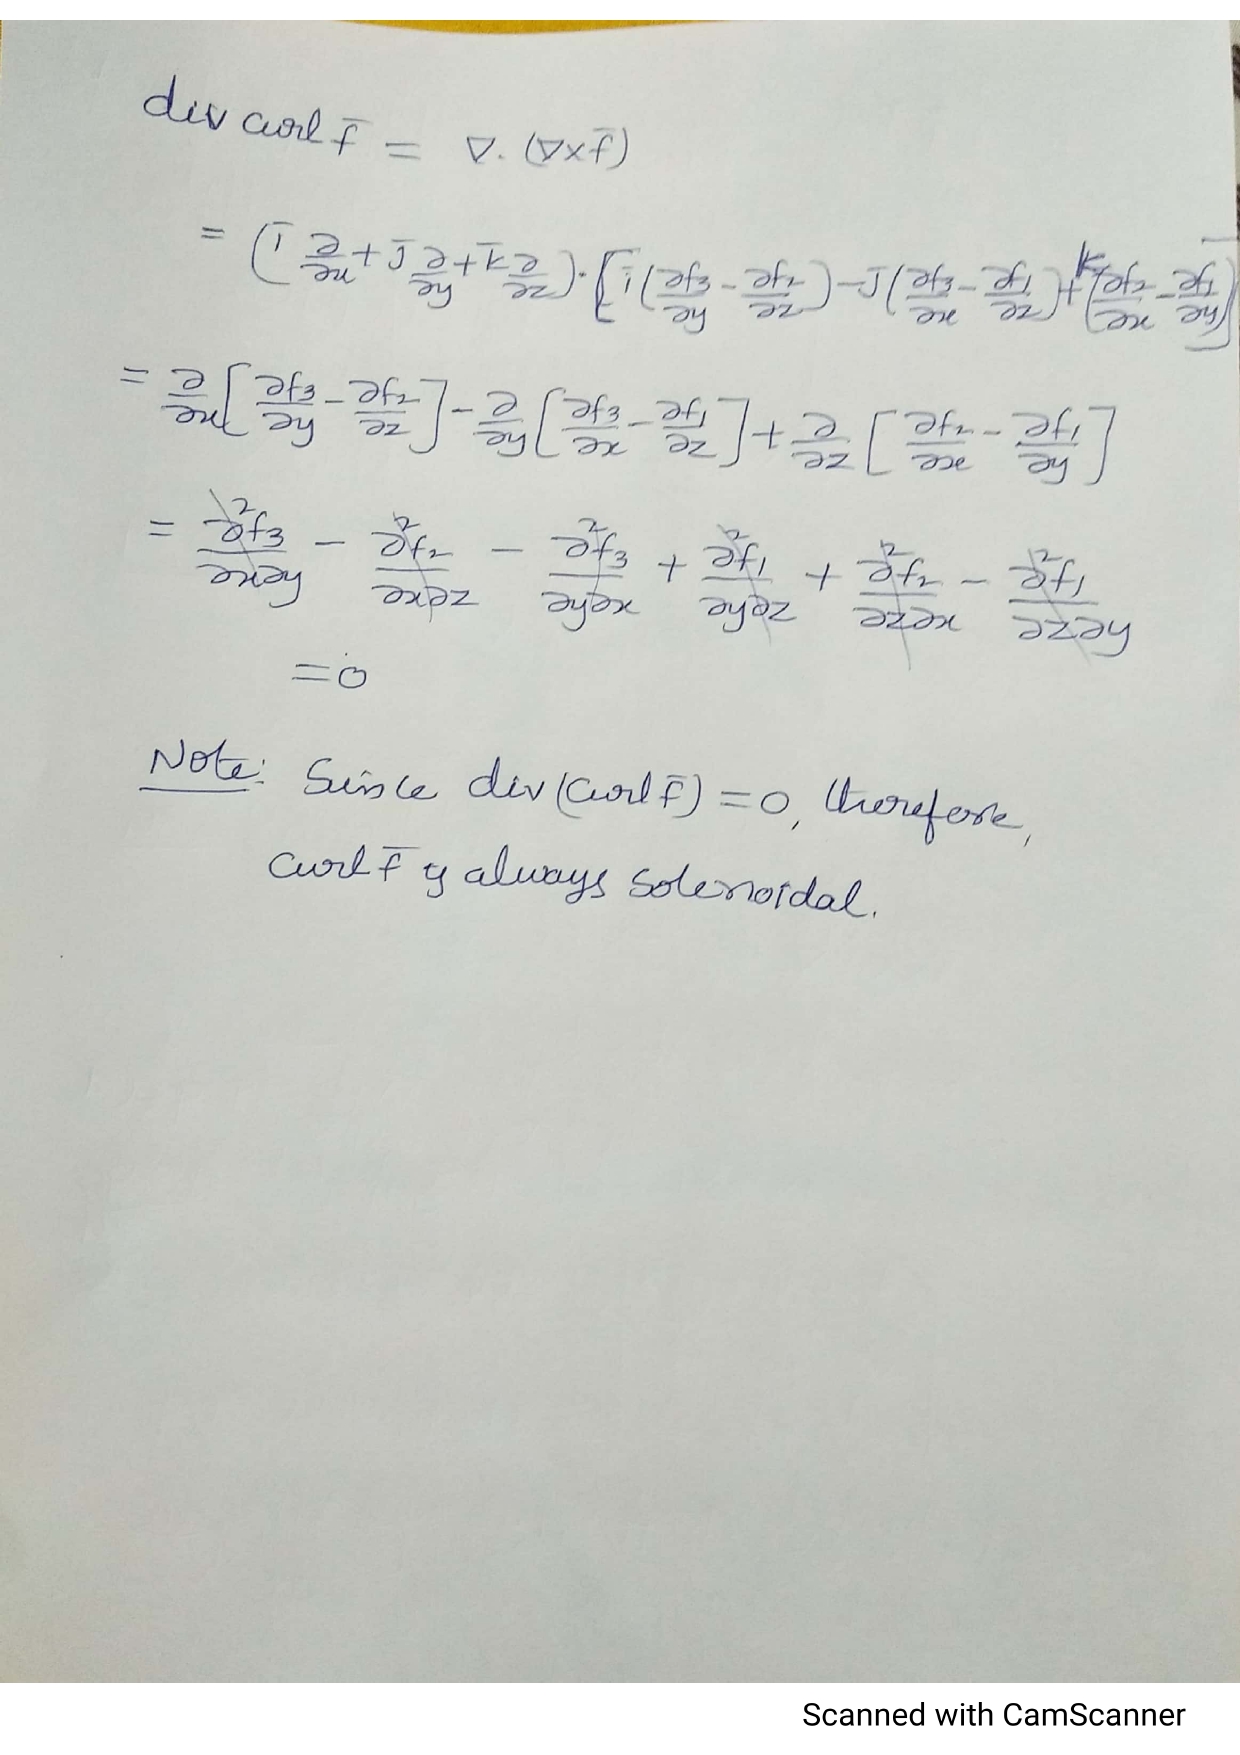 div curl f̄ = ∇. (∇×f̄)
= (ī ∂/∂x + j̄ ∂/∂y + k̄ ∂/∂z) . [ī (∂f₃/∂y - ∂f₂/∂z) - j̄ (∂f₃/∂x - ∂f₁/∂z) + k̄ (∂f₂/∂x - ∂f₁/∂y)]
= ∂/∂x [∂f₃/∂y - ∂f₂/∂z] - ∂/∂y [∂f₃/∂x - ∂f₁/∂z] + ∂/∂z [∂f₂/∂x - ∂f₁/∂y]
= ∂²f₃/∂x∂y - ∂²f₂/∂x∂z - ∂²f₃/∂y∂x + ∂²f₁/∂y∂z + ∂²f₂/∂z∂x - ∂²f₁/∂z∂y
= 0
Note: Since div (curl f̄) = 0, therefore,
curl f̄ is always solenoidal.
Scanned with CamScanner